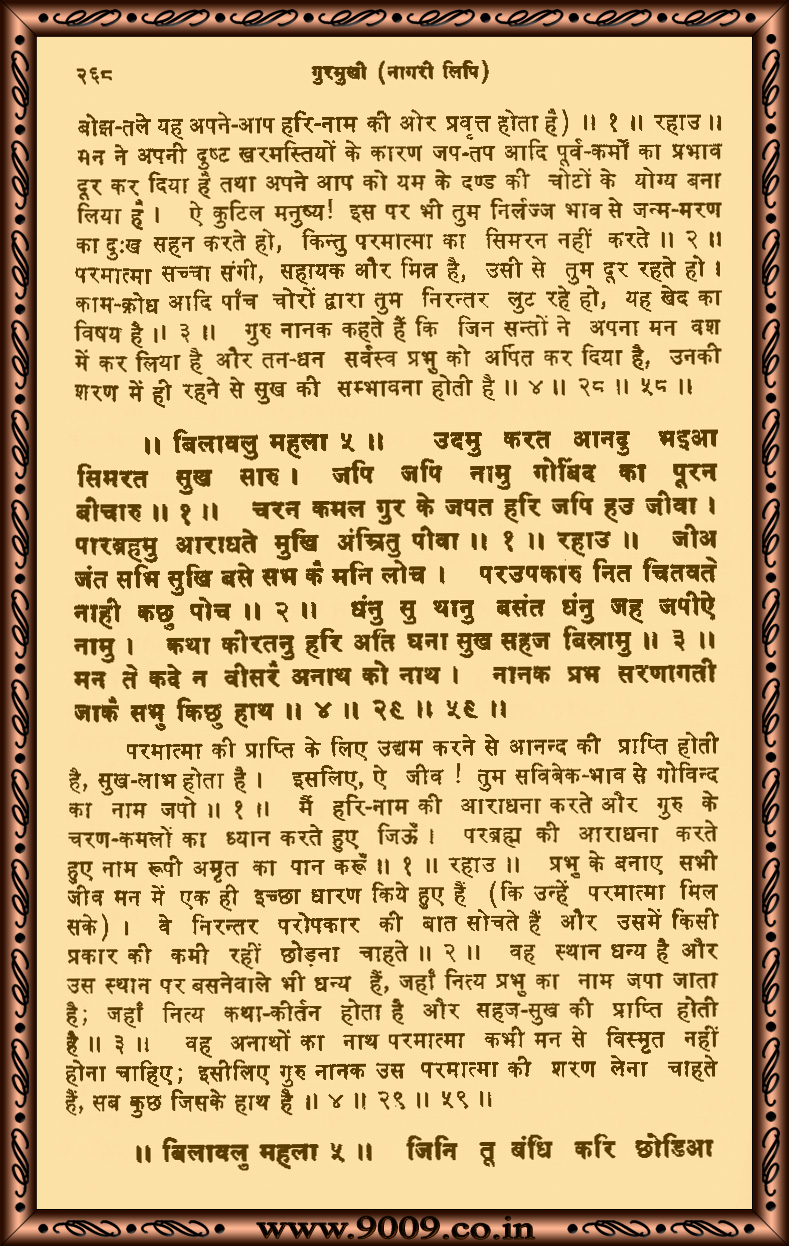 २६८ गुरमुखी (नागरी लिपि)
बोझ-तले यह अपने-आप हरि-नाम की ओर प्रवृत्त होता है) ॥ १ ॥ रहाउ ॥
मन ने अपनी दुष्ट खरमस्तियों के कारण जप-तप आदि पूर्व-कर्मों का प्रभाव
दूर कर दिया है तथा अपने आप को यम के दण्ड की चोटों के योग्य बना
लिया है । ऐ कुटिल मनुष्य! इस पर भी तुम निर्लज्ज भाव से जन्म-मरण
का दुःख सहन करते हो, किन्तु परमात्मा का सिमरन नहीं करते ॥ २ ॥
परमात्मा सच्चा संगी, सहायक और मित्र है, उसी से तुम दूर रहते हो ।
काम-क्रोध आदि पाँच चोरों द्वारा तुम निरन्तर लुट रहे हो, यह खेद का
विषय है ॥ ३ ॥ गुरु नानक कहते हैं कि जिन सन्तों ने अपना मन वश
में कर लिया है और तन-धन सर्वस्व प्रभु को अर्पित कर दिया है, उनकी
शरण में ही रहने से सुख की सम्भावना होती है ॥ ४ ॥ २८ ॥ ५८ ॥
॥ बिलावलु महला ५ ॥ उदमु करत आनदु भइआ
सिमरत सुख सारु । जपि जपि नामु गोबिंद का पूरन
बीचारु ॥ १ ॥ चरन कमल गुर के जपत हरि जपि हउ जीवा ।
पारब्रहमु आराधते मुखि अंम्रितु पीवा ॥ १ ॥ रहाउ ॥ जीअ
जंत सभि सुखि बसे सभ कै मनि लोच । परउपकारु नित चितवते
नाही कछु पोच ॥ २ ॥ धंनु सु थानु बसंत धंनु जह जपीऐ
नामु । कथा कीरतनु हरि अति घना सुख सहज बिस्रामु ॥ ३ ॥
मन ते कदे न वीसरै अनाथ को नाथ । नानक प्रभ सरणागती
जाकै सभु किछु हाथ ॥ ४ ॥ २९ ॥ ५९ ॥
परमात्मा की प्राप्ति के लिए उद्यम करने से आनन्द की प्राप्ति होती
है, सुख-लाभ होता है । इसलिए, ऐ जीव ! तुम सविबेक-भाव से गोविन्द
का नाम जपो ॥ १ ॥ मैं हरि-नाम की आराधना करते और गुरु के
चरण-कमलों का ध्यान करते हुए जिऊँ । परब्रह्म की आराधना करते
हुए नाम रूपी अमृत का पान करूँ ॥ १ ॥ रहाउ ॥ प्रभु के बनाए सभी
जीव मन में एक ही इच्छा धारण किये हुए हैं (कि उन्हें परमात्मा मिल
सके) । वे निरन्तर परोपकार की बात सोचते हैं और उसमें किसी
प्रकार की कमी रहीं छोड़ना चाहते ॥ २ ॥ वह स्थान धन्य है और
उस स्थान पर बसनेवाले भी धन्य हैं, जहाँ नित्य प्रभु का नाम जपा जाता
है; जहाँ नित्य कथा-कीर्तन होता है और सहज-सुख की प्राप्ति होती
है ॥ ३ ॥ वह अनाथों का नाथ परमात्मा कभी मन से विस्मृत नहीं
होना चाहिए; इसीलिए गुरु नानक उस परमात्मा की शरण लेना चाहते
हैं, सब कुछ जिसके हाथ है ॥ ४ ॥ २९ ॥ ५९ ॥
॥ बिलावलु महला ५ ॥ जिनि तू बंधि करि छोडिआ
www.9009.co.in